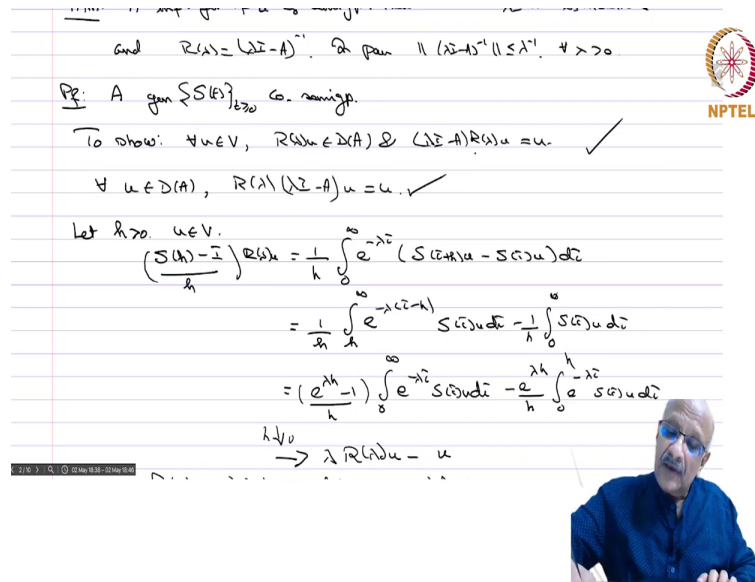 and R(λ) = (λI - A)^{-1}. In par ‖(λI-A)^{-1}‖ ≤ λ^{-1}. ∀ λ>0.
NPTEL
Pf: A gen {S(t)}_{t≥0} c₀-semigp.
To show: ∀u∈V, R(λ)u ∈ D(A) & (λI-A)R(λ)u = u. ✓
∀ u∈D(A), R(λ)(λI-A)u = u. ✓
Let h>0. u∈V.
((S(h) - I)/h) R(λ)u = 1/h ∫_0^∞ e^{-λτ} (S(τ+h)u - S(τ)u) dτ
= 1/h ∫_h^∞ e^{-λ(τ-h)} S(τ)u dτ - 1/h ∫_0^∞ S(τ)u dτ
= ((e^{λh} - 1)/h) ∫_0^∞ e^{-λτ} S(τ)u dτ - e^{λh}/h ∫_0^h e^{-λτ} S(τ)u dτ
h↓0 → λ R(λ)u - u
2/10 02 May 18:38 - 02 May 18:46